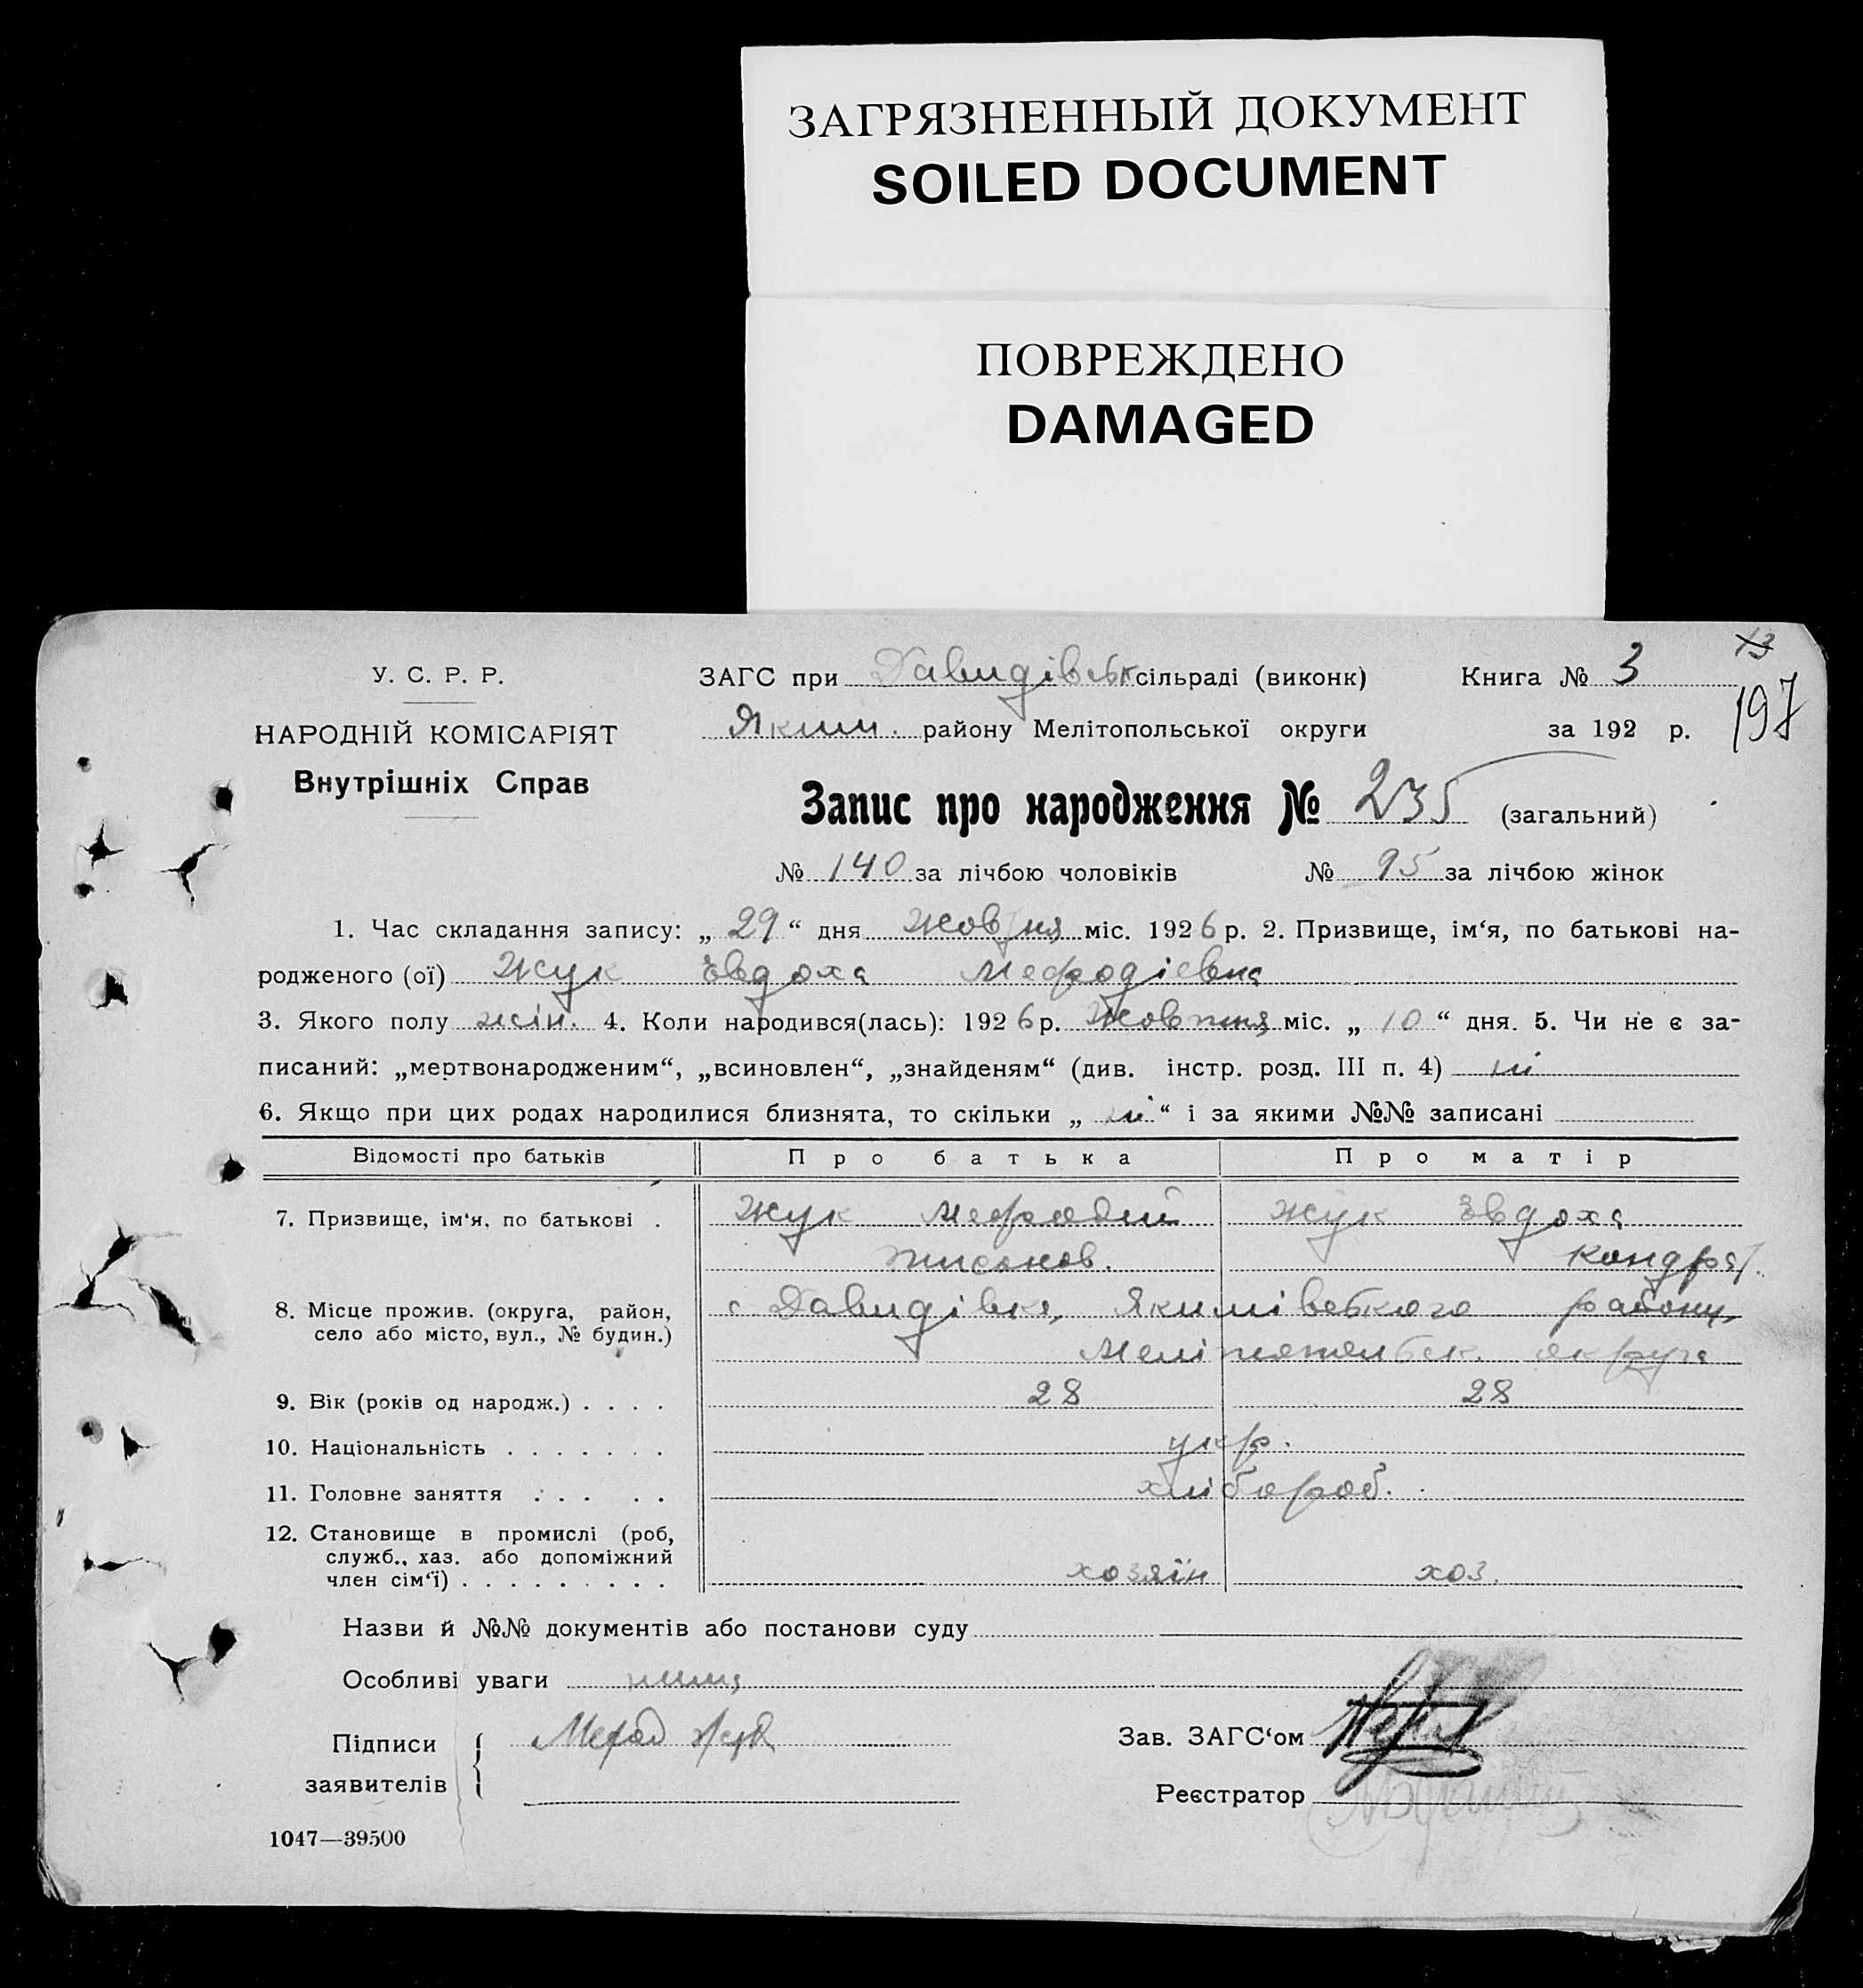 ЗАГРЯЗНЕННЫЙ ДОКУМЕНТ
SOILED DOCUMENT
ПОВРЕЖДЕНО
DAMAGED
13
У. С. Р. Р. ЗАГС при Давидівськ сільраді (виконк) Книга № 3
197
НАРОДНІЙ КОМІСАРІЯТ Яким. району Мелітопольської округи за 192 р.
Внутрішніх Справ
Запис про народження № 235 (загальний)
№ 140 за лічбою чоловіків № 95 за лічбою жінок
1. Час складання запису: „ 29 “ дня жовтня міс. 1926 р. 2. Призвище, ім‘я, по батькові на-
родженого (ої) Жук Євдоха Мефодієвна
3. Якого полу жін. 4. Коли народився(лась): 1926 р. Жовтня міс. „ 10 “ дня. 5. Чи не є за-
писаний: „мертвонародженим“, „всиновлен“, „знайденям“ (див. інстр. розд. III п. 4) ні
6. Якщо при цих родах народилися близнята, то скільки „ ні “ і за якими №№ записані
Відомості про батьків Про батька Про матір
7. Призвище, ім‘я, по батькові . Жук Мефодий Жук Євдоха
Кондрат.
8. Місце прожив. (округа, район, с Давидівка, Якимівського району,
село або місто, вул., № будин.) Мелітопольськ. округа
9. Вік (років од народж.) . . . . 28 28
10. Національність . . . . . . . укр.
11. Головне заняття . . . . . хлібороб.
12. Становище в промислі (роб,
служб., хаз. або допоміжний
член сім‘ї) . . . . . . . . . хозяїн хоз.
Назви й №№ документів або постанови суду
Особливі уваги нима
Підписи Мефод Жук Зав. ЗАГС‘ом
заявителів Реєстратор
1047—39500